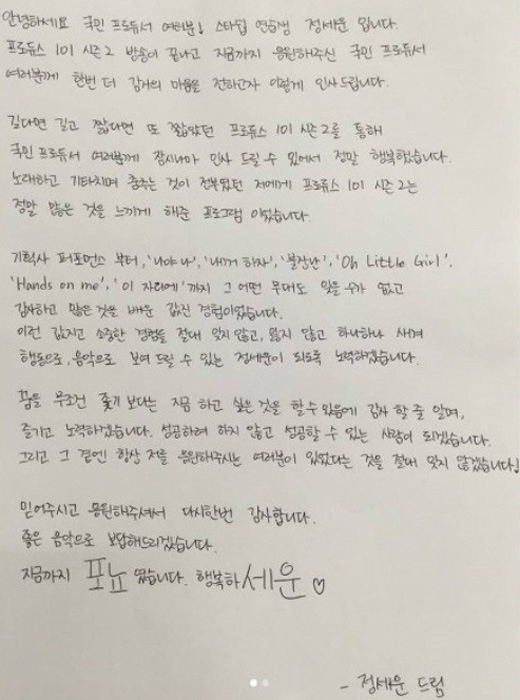 안녕하세요 국민 프로듀서 여러분! 스타쉽 연습생 정세운 입니다.
프로듀스 101 시즌2 방송이 끝나고 지금까지 응원해주신 국민 프로듀서
여러분께 한번 더 감사의 마음을 전하고자 이렇게 인사드립니다.
길다면 길고 짧다면 또 짧았던 프로듀스 101 시즌2를 통해
국민 프로듀서 여러분께 잠시나마 인사 드릴 수 있어서 정말 행복했습니다.
노래하고 기타치며 춤추는 것이 전부였던 저에게 프로듀스 101 시즌2는
정말 많은 것을 느끼게 해준 프로그램 이었습니다.
기획사 퍼포먼스 부터, '나야 나', '내꺼 하자', '불장난', 'Oh Little Girl',
'Hands on me', '이 자리에' 까지 그 어떤 무대도 잊을 수가 없고
감사하고 많은 것을 배운 값진 경험이었습니다.
이런 값지고 소중한 경험들 절대 잊지않고, 잃지 않고 하나하나 새겨
행동으로, 음악으로 보여 드릴 수 있는 정세운이 되도록 노력하겠습니다.
꿈을 무조건 좇기 보다는 지금 하고 싶은 것을 할 수 있음에 감사 할 줄 알며,
즐기고 노력하겠습니다. 성공하려 하지 않고 성공할 수 있는 사람이 되겠습니다.
그리고 그 곁엔 항상 저를 응원해주시는 여러분이 있었다는 것을 절대 잊지 않겠습니다!
믿어주시고 응원해주셔서 다시한번 감사합니다.
좋은 음악으로 보답해드리겠습니다.
지금까지 포뇨 였습니다. 행복하세운 ♡
- 정세운 드림